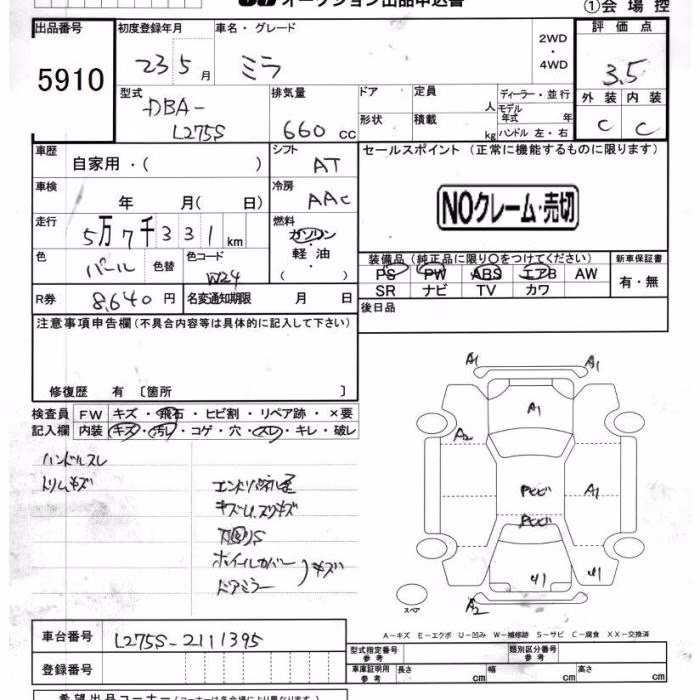 オークション出品申込書
①会場控
出品番号 初度登録年月 車名・グレード 2WD・4WD 評価点
5910
23 5月
ミラ
3.5
型式 排気量 ドア 定員 人 ディーラー・並行
外装 内装
DBA-
L275S
660 cc
モデル年式 年
形状 積載 kg ハンドル 左・右
C C
車歴 自家用・( )
シフト AT
セールスポイント(正常に機能するものに限ります)
車検 年 月( 日)
冷房 AAC
NOクレーム・売切
走行 5万7千331km
燃料 ガソリン・軽油・( )
色 パール 色替 色コード W24
装備品(純正品に限り○をつけてください) 新車保証書
PS PW ABS エアB AW
SR ナビ TV カワ
有・無
R券 8,640円 名変通知期限 月 日
後日品
注意事項申告欄(不具合内容等は具体的に記入して下さい)
修復歴 有〔箇所 〕
検査員記入欄
FW キズ・飛石・ヒビ割・リペア跡・×要
内装 キズ・汚レ・コゲ・穴・スレ・キレ・破レ
ハンドルスレ
トリムキズ
キズ
ホイールカバー
ドアミラー
キズ
A1 A1
A1
A2
A1
A2
スペア
A-キズ E-エクボ U-凹み W-補修跡 S-サビ C-腐食 XX-交換済
車台番号 L275S-2111395
型式指定番号 参考 類別区分番号 参考
登録番号
車庫証明用 参考 長さ cm 幅 cm 高さ cm
希望出品コーナー